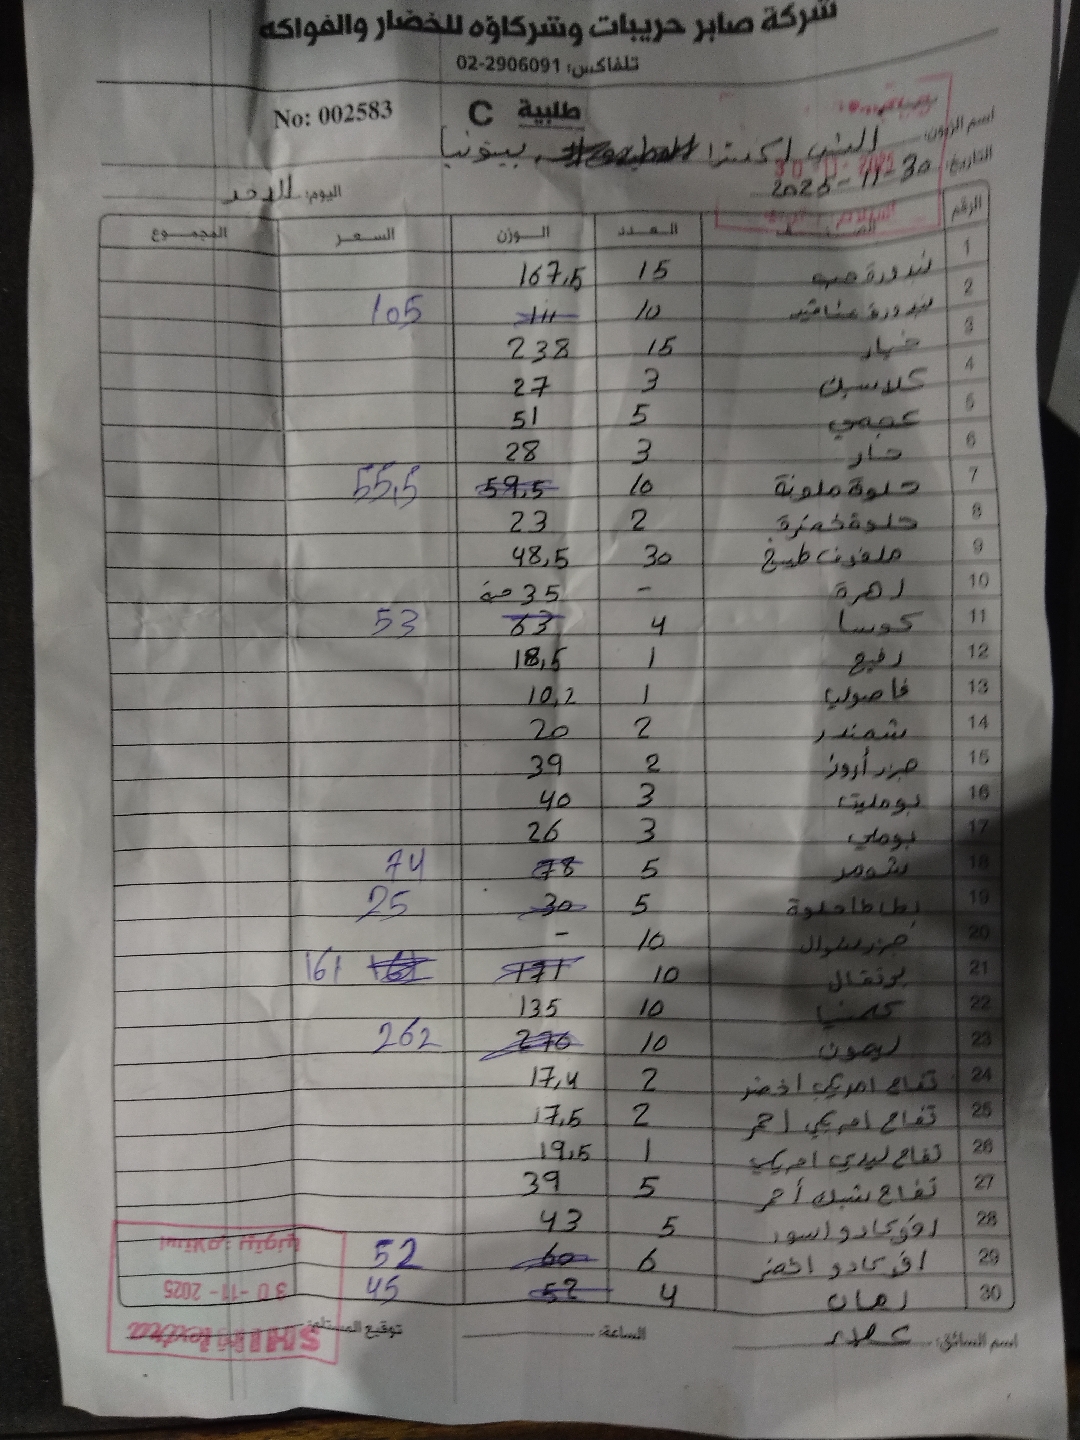 شركة صابر حريبات وشركاؤه للخضار والفواكه
تلفاكس: 02-2906091
No: 002583 طلبية C
اسم الزبون: الشني اكسترا بيتونيا
التاريخ: 30-11-2025
اليوم: الاحد
الرقم الصنف العدد الوزن السعر المجموع
1 بندورة حب 15 167,5
2 بندورة عناقيد 10 111 105
3 خيار 15 238
4 كلاسيك 3 27
5 عجمي 5 51
6 حار 3 28
7 حلوة ملونة 10 59,5 55,5
8 حلوة خضرة 2 23
9 ملفوف طبيخ 30 48,5
10 زهرة - 35 حبة
11 كوسا 4 63 53
12 رفيع 1 18,5
13 فاصوليا 1 10,2
14 شمندر 2 20
15 جزر أروز 2 39
16 بومليت 3 40
17 بوملي 3 26
18 شومر 5 78 74
19 بطاطا حلوة 5 30 25
20 جزر شوال 10 -
21 برتقال 10 171 161 161
22 كلمنتيا 10 135
23 ليمون 10 276 262
24 تفاح امريكي اخضر 2 17,4
25 تفاح امريكي احمر 2 17,5
26 تفاح ليدي امريكي 1 19,5
27 تفاح شبك أحمر 5 39
28 افوكادو اسود 5 43
29 افوكادو اخضر 6 60 52
30 رمان 4 52 45
اسم السائق: علاء الساعة: توقيع المستلم:
استلام بيتونيا
30-11-2025